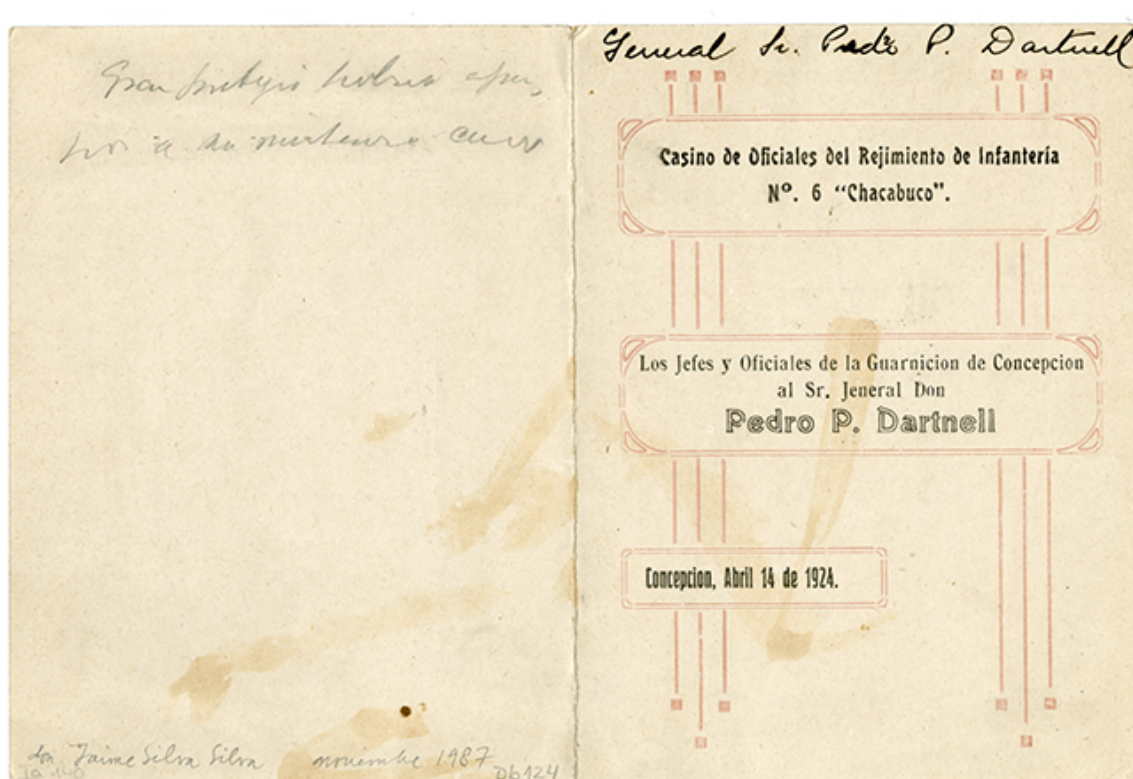 Gran prestigio
a su
don Jaime Silva Silva noviembre 1987
Db124
General Sr. Pedro P. Dartnell
Casino de Oficiales del Rejimiento de Infantería
Nº. 6 “Chacabuco”.
Los Jefes y Oficiales de la Guarnicion de Concepcion
al Sr. Jeneral Don
Pedro P. Dartnell
Concepcion, Abril 14 de 1924.